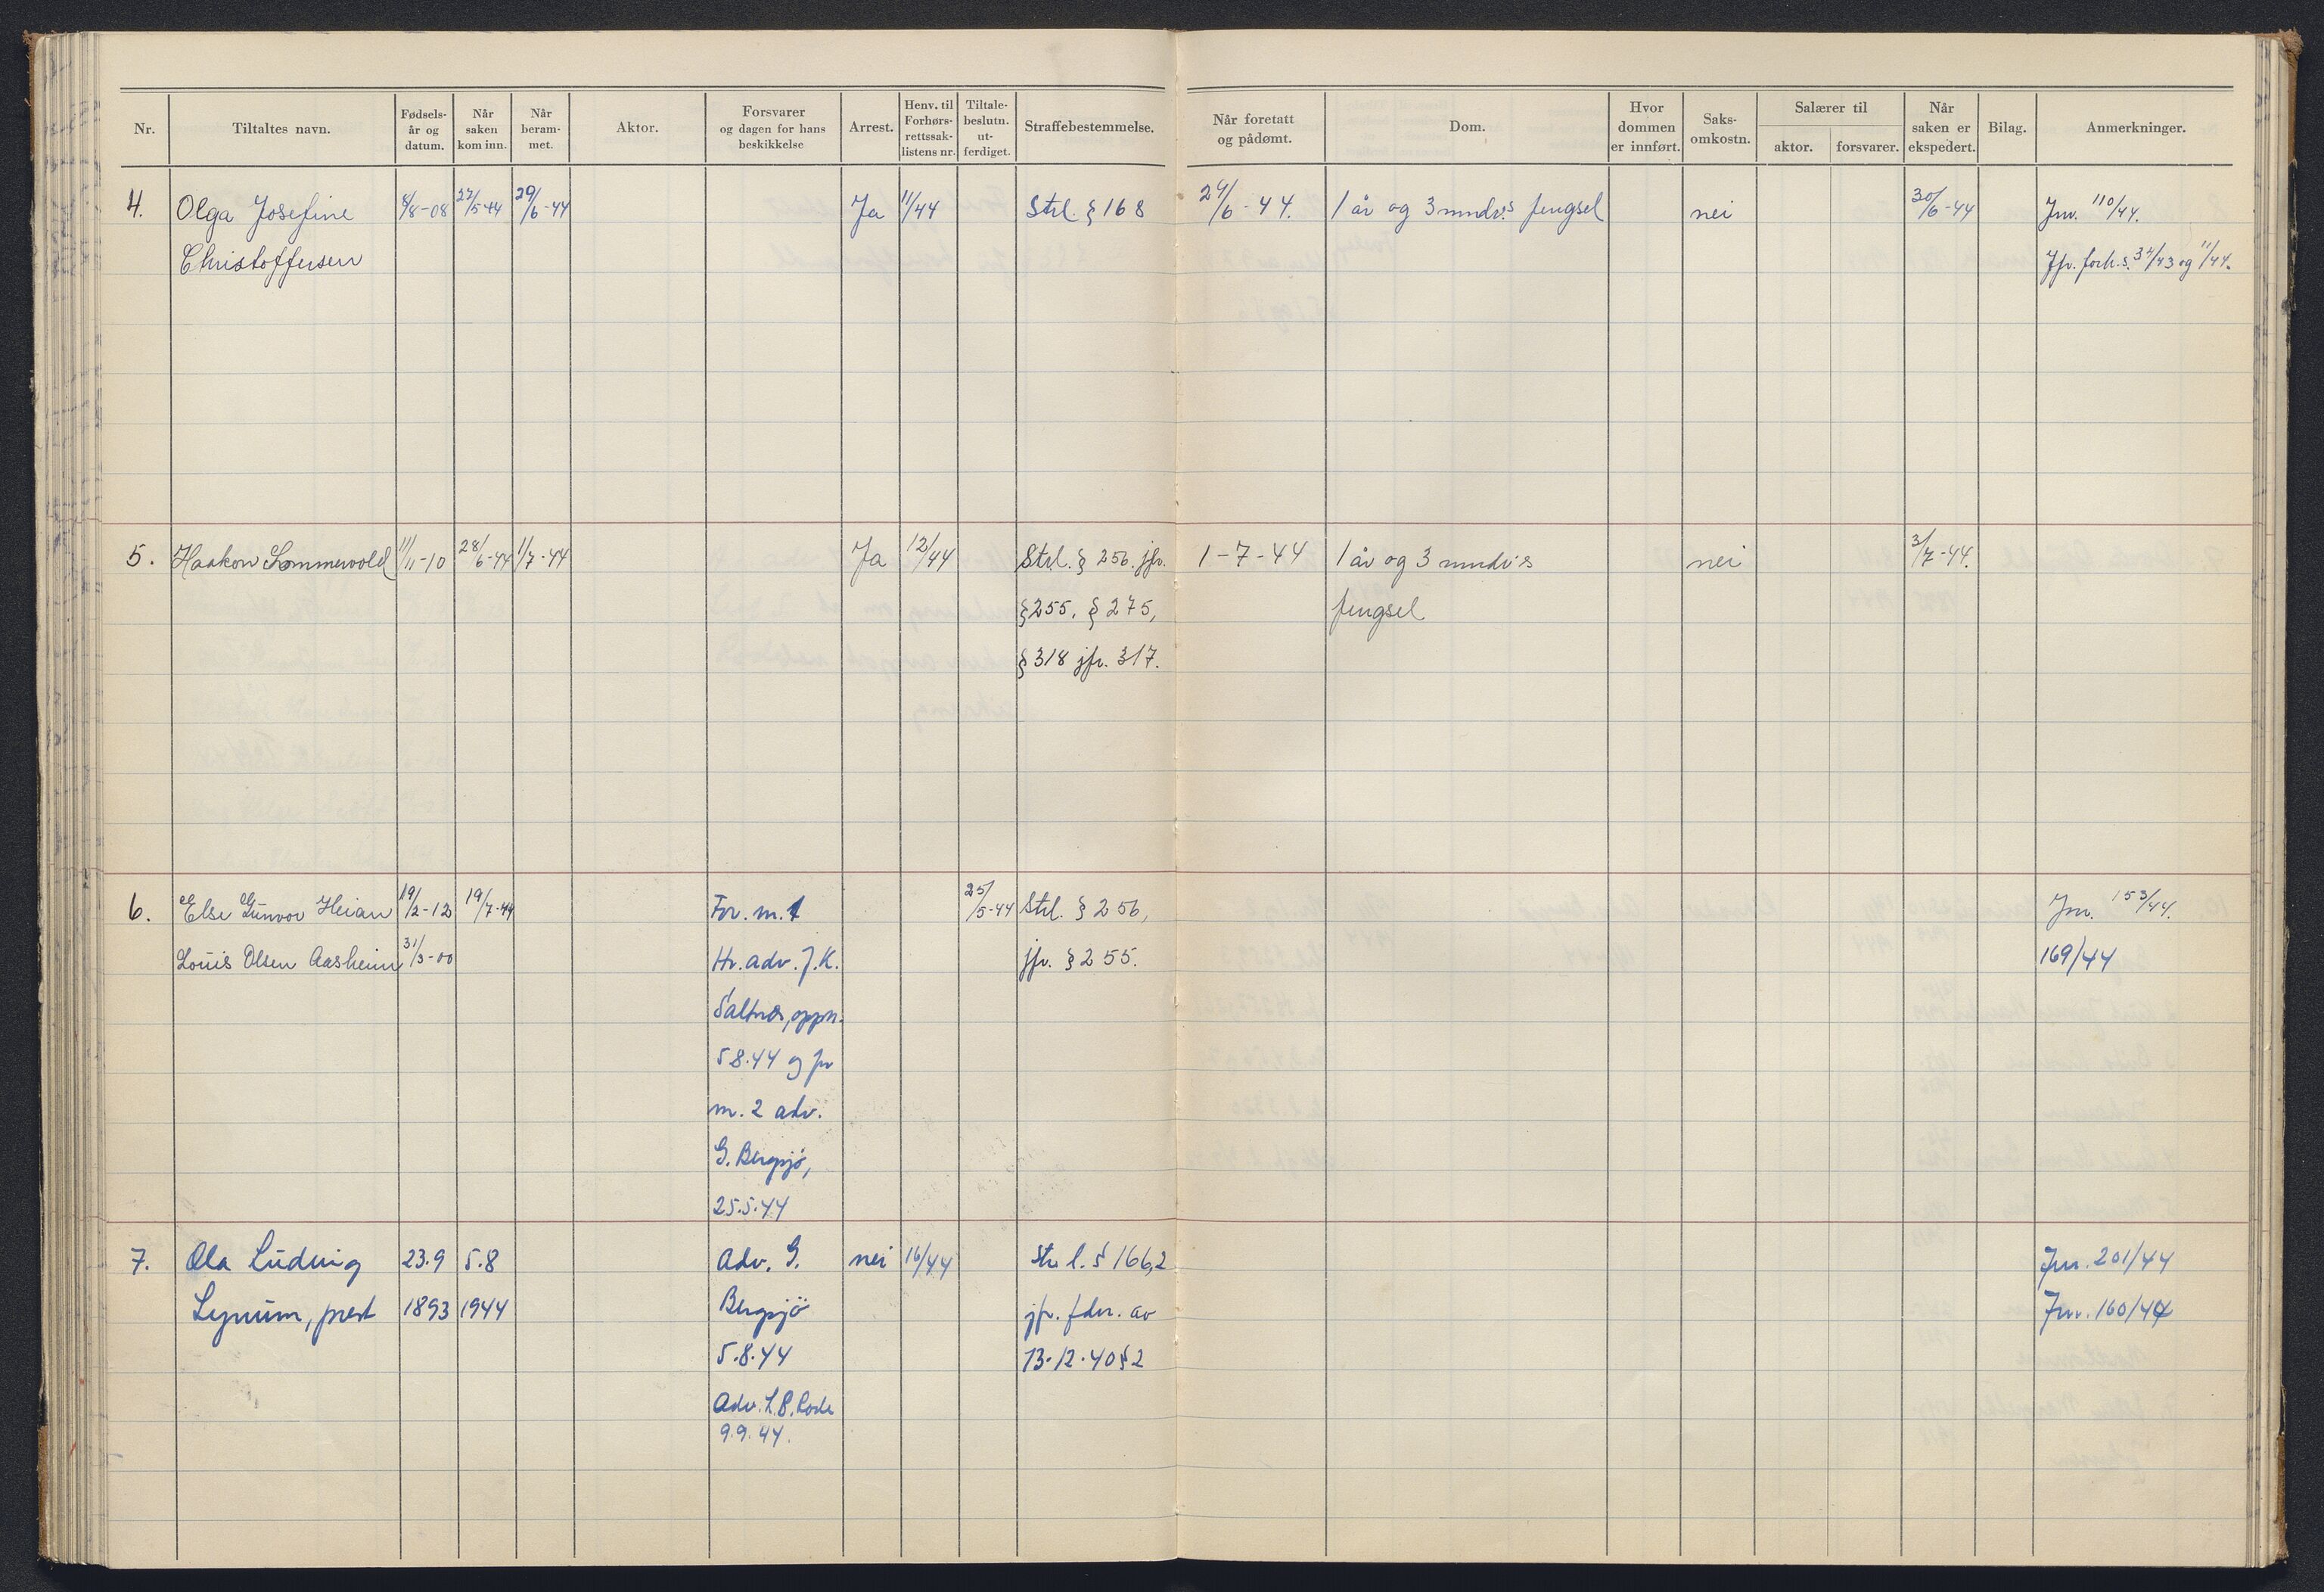 Nr.
Tiltaltes navn.
Fødsels-
år og
datum.
Når
saken
kom inn.
Når
beram-
met.
Aktor.
Forsvarer
og dagen for hans
beskikkelse
Arrest.
Henv. til
Forhørs-
rettssak-
listens nr.
Tiltale-
beslutn.
ut-
ferdiget.
Straffebestemmelse.
Når foretatt
og pådømt.
Dom.
Hvor
dommen
er innført.
Saks-
omkostn.
Salærer til
aktor.
forsvarer.
Når
saken er
ekspedert.
Bilag.
Anmerkninger.
4. Olga Josefine 8/8-08 27/5-44 29/6-44 Ja 11/44 Strl. § 168 29/6-44. 1 år og 3 mndr's fengsel nei 30/6-44 Jnr. 110/44.
Christoffersen Jfr. forh.s. 34/43 og 11/44.
5. Haakon Sommervold 11/11-10 28/6-44 1/7-44 Ja 12/44 Strl. § 256. jfr. 1-7-44 1 år og 3 mndr's nei 3/7-44.
§ 255, § 275, fengsel
§ 318 jfr. 317.
6. Else Gunvor Heian 19/2-12 19/7-44 For. m. 1 25/5-44 Strl. § 256, Jnr. 153/44.
Louis Olsen Aasheim 31/3-00 Hr. adv. J.K. jfr. § 255. 169/44
Saltnes, oppn.
5 8.44 og for
m. 2 adv.
G. Bergsjø,
25.5.44
7. Ola Ludvig 23.9 5.8 Adv. G. nei 16/44 Str. l. § 166,2 Jnr. 201/44
Lynum, prest 1893 1944 Bergsjö jfr. fdn. av Jnr. 160/44
5.8.44 13.12.40 § 2
Adv. L.B. Rode
9.9.44.